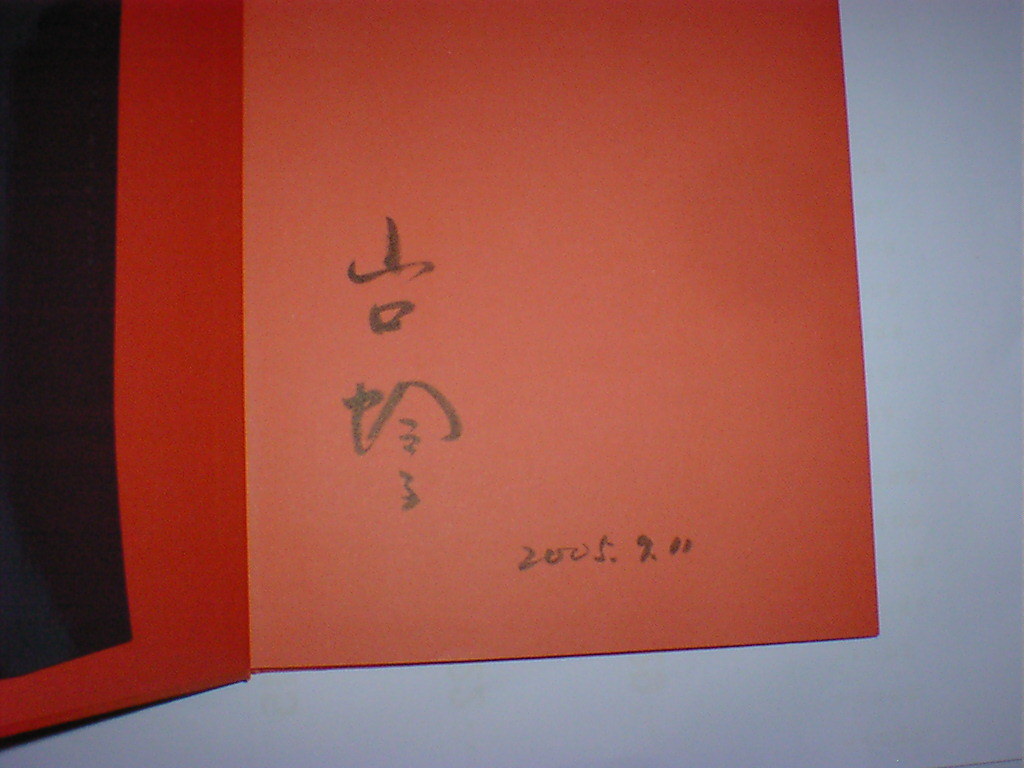 山口
玲子
2005.9.11